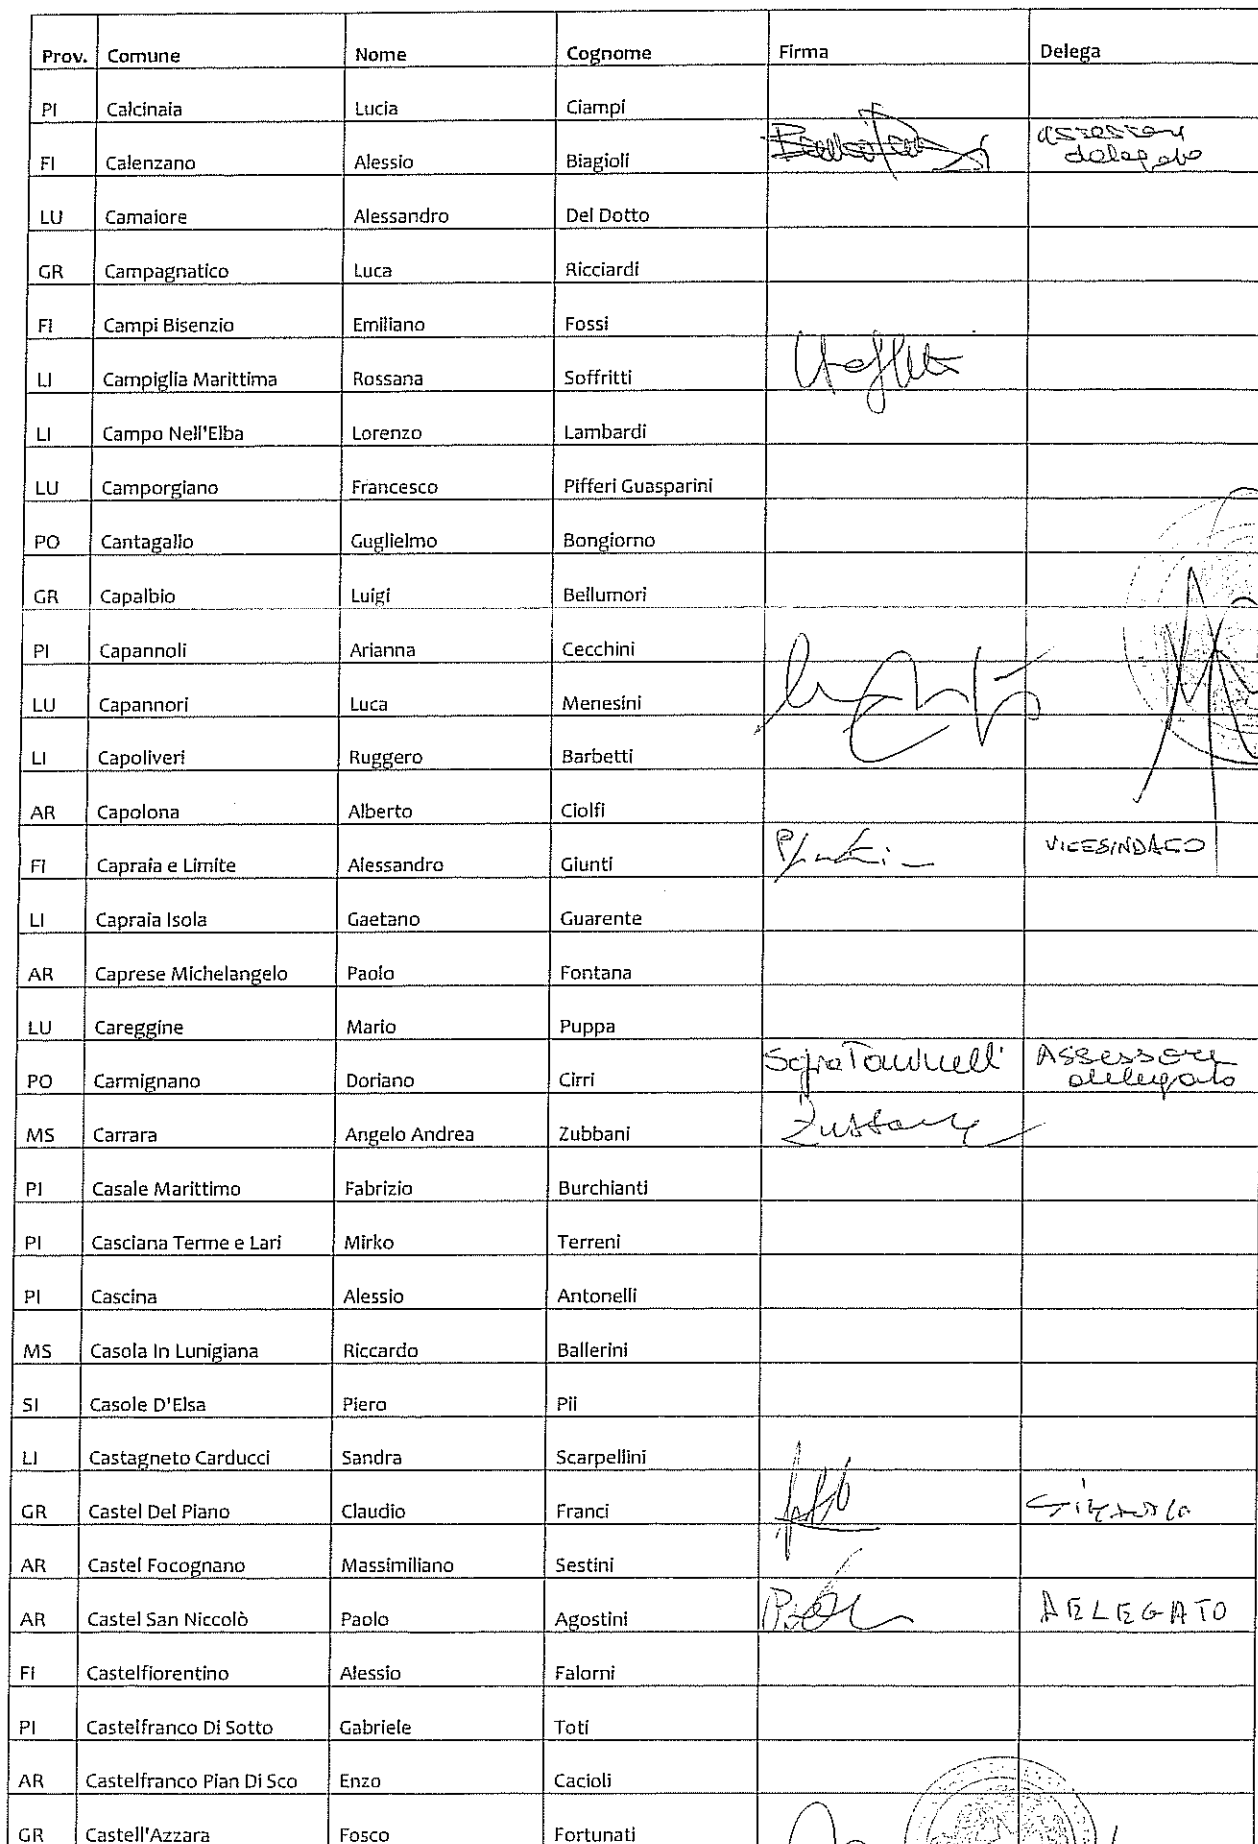 Prov. Comune Nome Cognome Firma Delega
PI Calcinaia Lucia Ciampi
FI Calenzano Alessio Biagioli assessore
delegato
LU Camaiore Alessandro Del Dotto
GR Campagnatico Luca Ricciardi
FI Campi Bisenzio Emiliano Fossi
LI Campiglia Marittima Rossana Soffritti
LI Campo Nell'Elba Lorenzo Lambardi
LU Camporgiano Francesco Pifferi Guasparini
PO Cantagallo Guglielmo Bongiorno
GR Capalbio Luigi Bellumori
PI Capannoli Arianna Cecchini
LU Capannori Luca Menesini
LI Capoliveri Ruggero Barbetti
AR Capolona Alberto Ciolfi
FI Capraia e Limite Alessandro Giunti VICESINDACO
LI Capraia Isola Gaetano Guarente
AR Caprese Michelangelo Paolo Fontana
LU Careggine Mario Puppa
PO Carmignano Doriano Cirri Assessore
delegato
MS Carrara Angelo Andrea Zubbani
PI Casale Marittimo Fabrizio Burchianti
PI Casciana Terme e Lari Mirko Terreni
PI Cascina Alessio Antonelli
MS Casola In Lunigiana Riccardo Ballerini
SI Casole D'Elsa Piero Pii
LI Castagneto Carducci Sandra Scarpellini
GR Castel Del Piano Claudio Franci
AR Castel Focognano Massimiliano Sestini
AR Castel San Niccolò Paolo Agostini DELEGATO
FI Castelfiorentino Alessio Falorni
PI Castelfranco Di Sotto Gabriele Toti
AR Castelfranco Pian Di Sco Enzo Cacioli
GR Castell'Azzara Fosco Fortunati